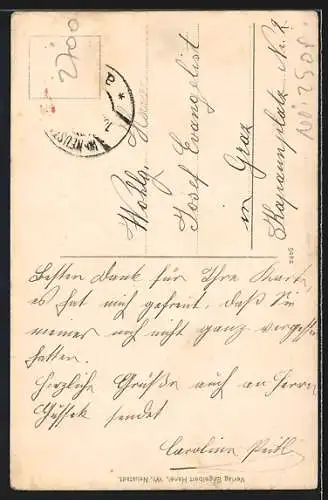 2700
WR. NEUST
Wohlg. Herrn
Josef Evangelist
in Graz
Kapaunplatz Nr. 2
5682
Besten Dank für Ihre Karte,
es hat mich gefreut, daß Sie
meiner noch nicht ganz vergessen
hatten.
Herzliche Grüße auch an Herrn
sendet
Caroline
Verlag Engelbert Hanel, Wr. Neustadt.